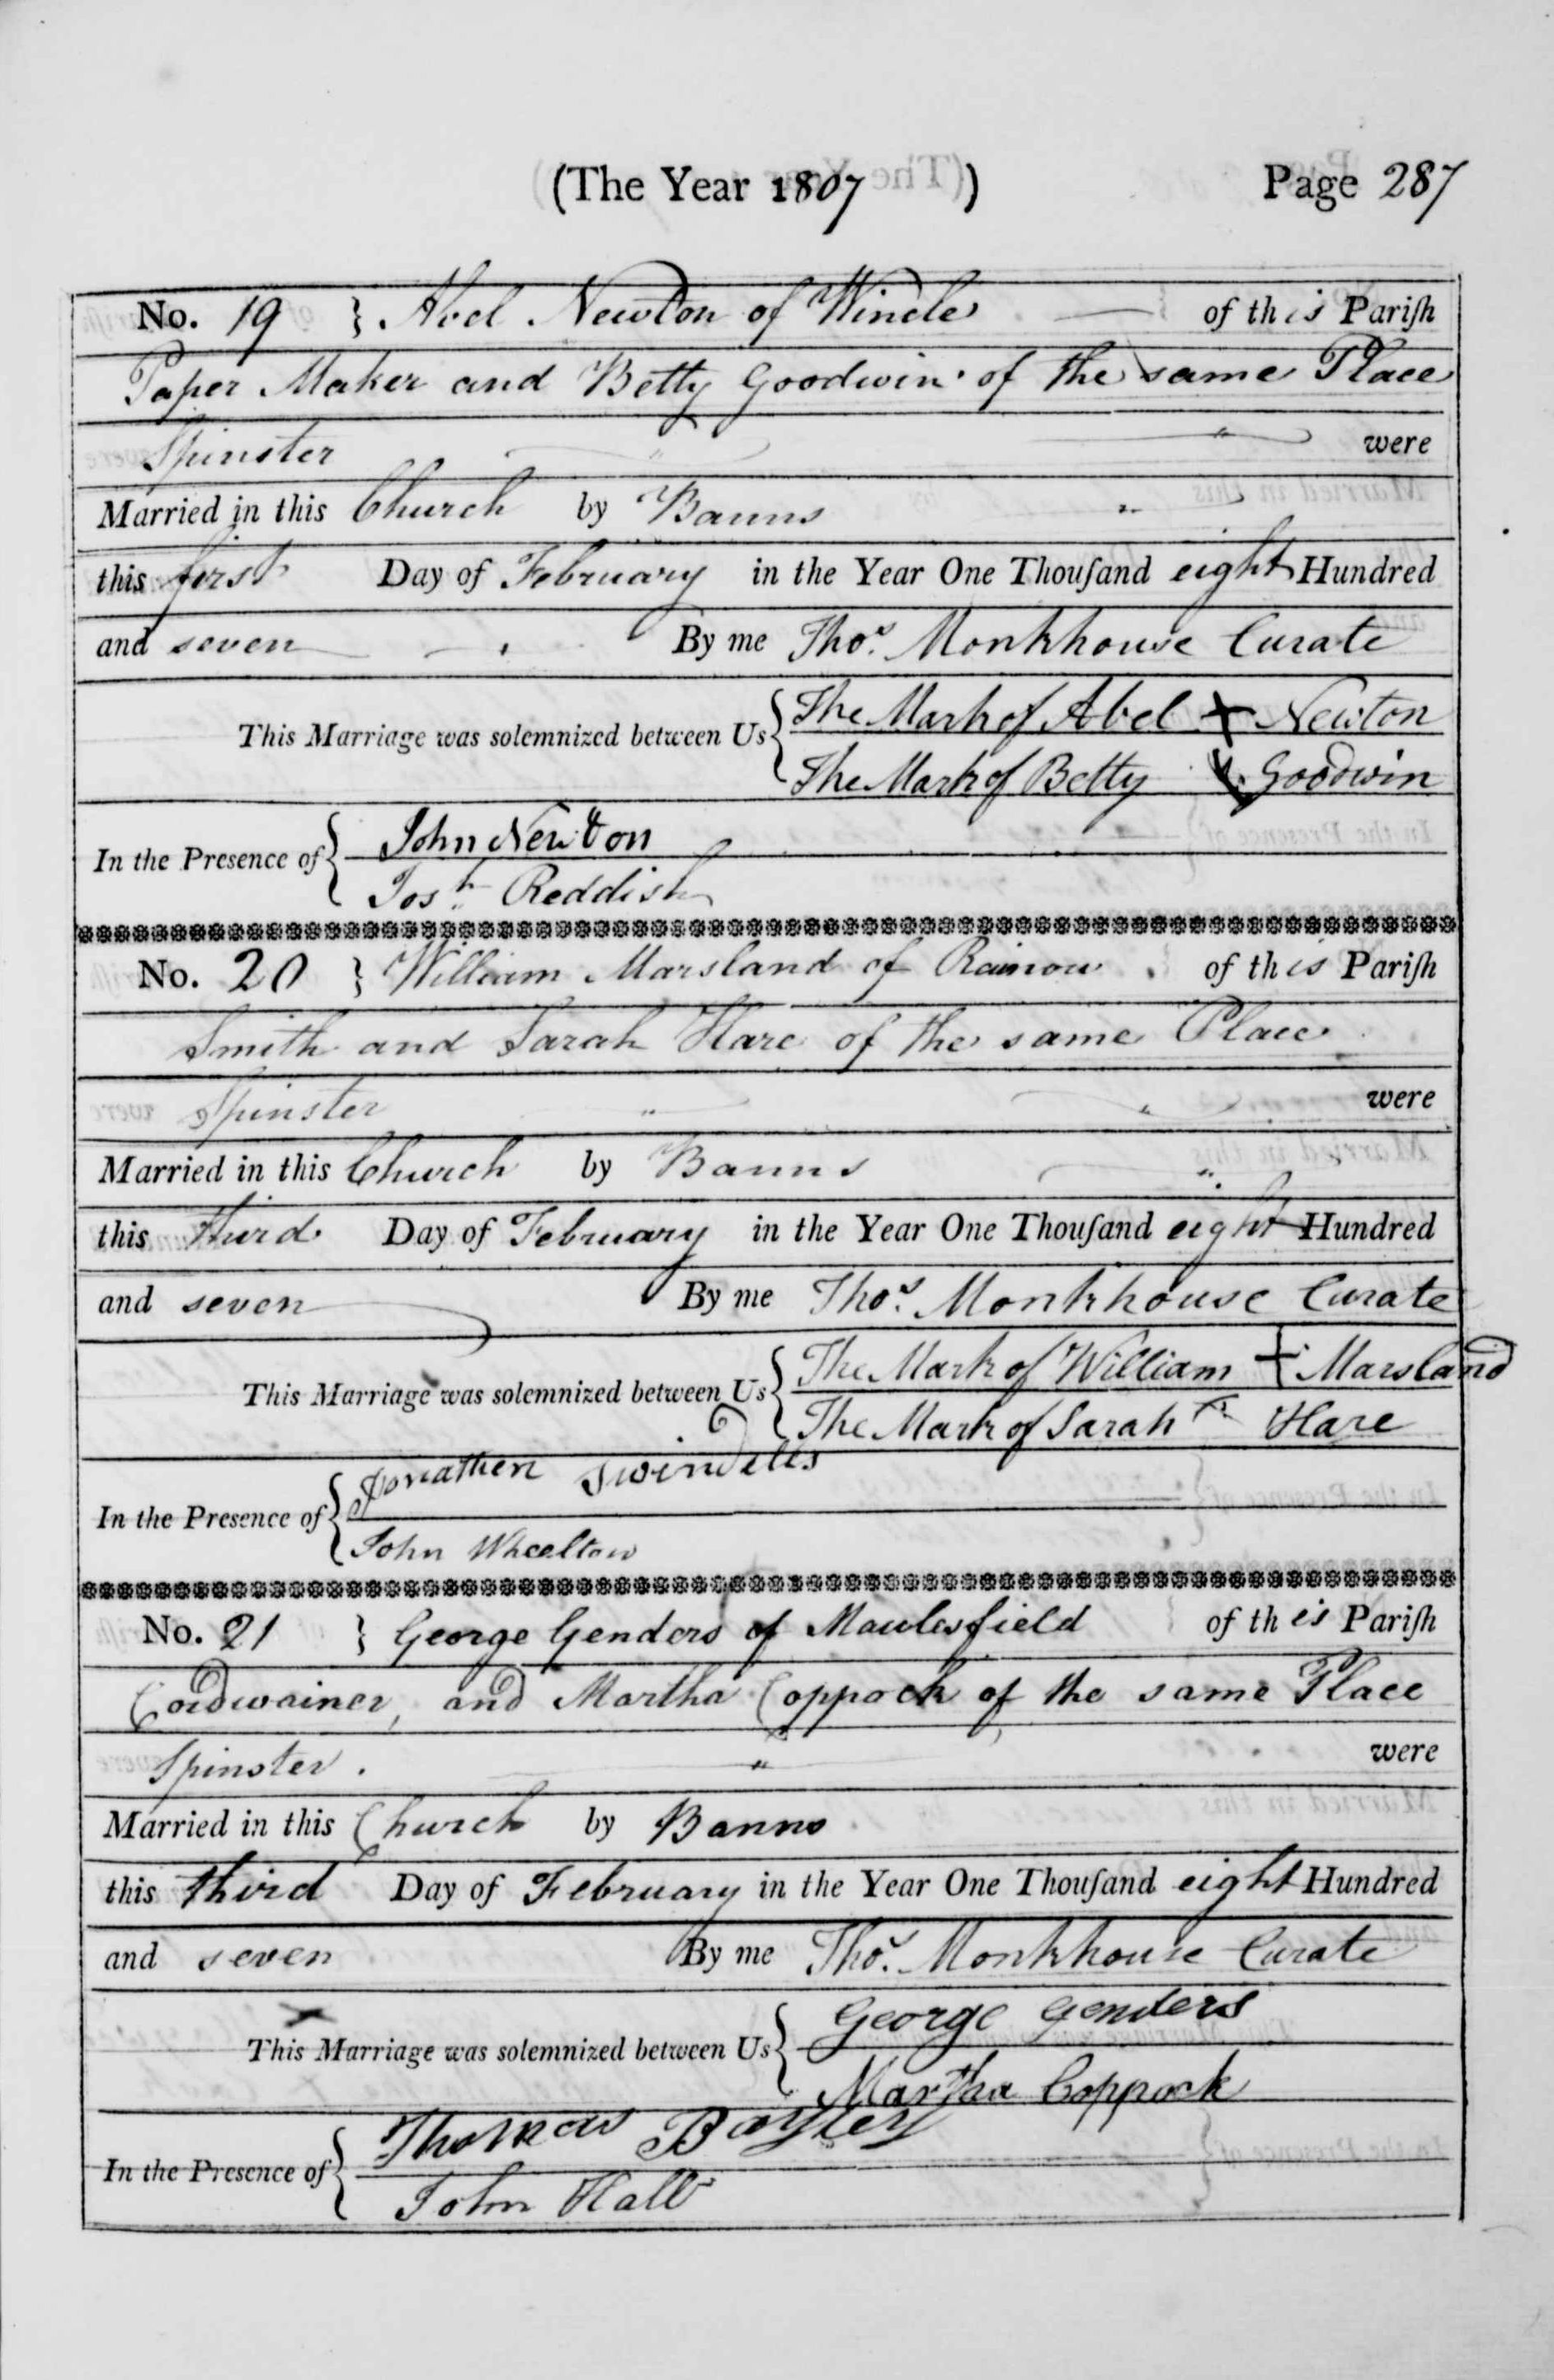 (The Year 1807) Page 287
No. 19 } Abel Newton of Wincle of this Pariſh
Paper Maker and Betty Goodwin of the same Place
Spinster were
Married in this Church by Banns
this first Day of February in the Year One Thouſand eight Hundred
and seven By me Thos. Monkhouse Curate
This Marriage was solemnized between Us { The Mark of Abel + Newton
The Mark of Betty X Goodwin
In the Presence of { John Newton
Josh. Reddish
No. 20 } William Marsland of Rainow of this Pariſh
Smith and Sarah Hare of the same Place
Spinster were
Married in this Church by Banns
this third Day of February in the Year One Thouſand eight Hundred
and seven By me Thos. Monkhouse Curate
This Marriage was solemnized between Us { The Mark of William + Marsland
The Mark of Sarah Hare
In the Presence of { Jonathen Swindells
John Wheelton
No. 21 } George Genders of Macclesfield of this Pariſh
Cordwainer, and Martha Coppock of the same Place
Spinster. were
Married in this Church by Banns
this third Day of February in the Year One Thouſand eight Hundred
and seven By me Thos. Monkhouse Curate
This Marriage was solemnized between Us { George Genders
Martha Coppock
In the Presence of { Thomas Bayley
John Hall